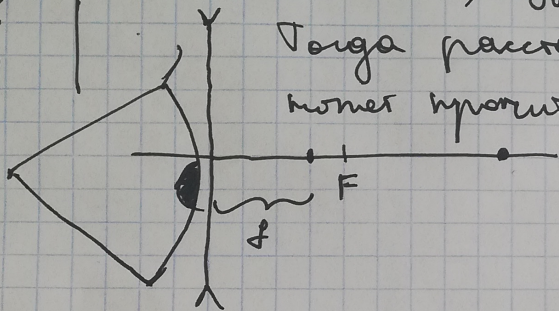 Тогда расст
может прочи
F
f